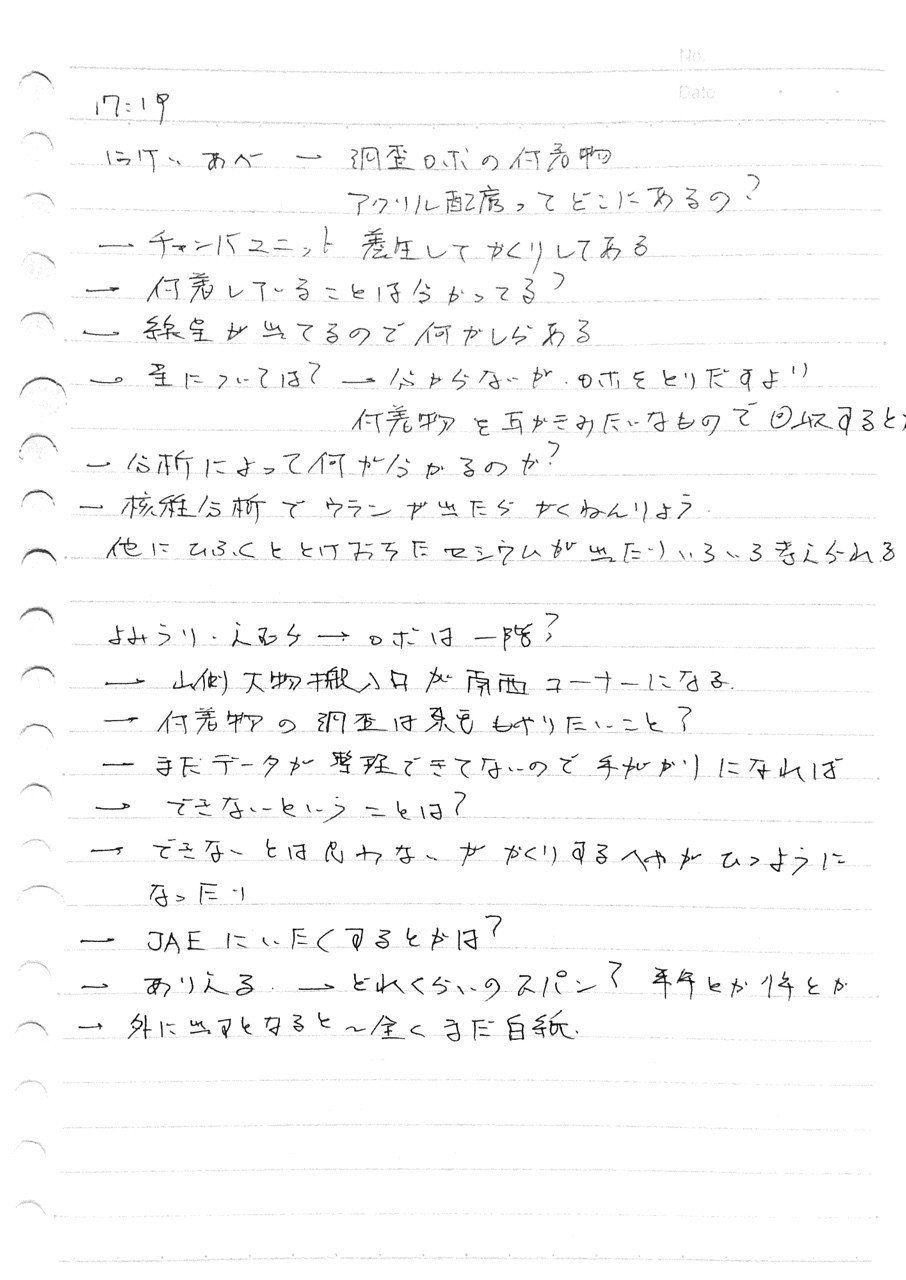 No.
Date
17:19
ほげい あべ → 調査ロボの付着物
アクリル配席ってどこにあるの?
→ チャンバユニット 養生してかくりしてある
→ 付着していることは分かってる?
→ 線量が出てるので何かしらある
→ 量については? → 分からないが、ロボをとりだすより
付着物を耳かきみたいなもので回収すると
→ 分析によって何が分かるのか?
→ 核種分析でウランが出たらかくねんりょう.
他にひふくととけおちたセシウムが出たりいろいろ考えられる
よみうり・えむら → ロボは一階?
→ 山側大物搬入口が南西コーナーになる.
→ 付着物の調査は東電もやりたいこと?
→ まだデータが整理できてないので手がかりになれば
→ できないということは?
→ できないとは思わないが かくりするへやがひつように
なったり
→ JAEにいたくするとかは?
→ ありえる. → どれくらいのスパン? 半年とか1年とか
→ 外に出すとなると〜全くまだ白紙.